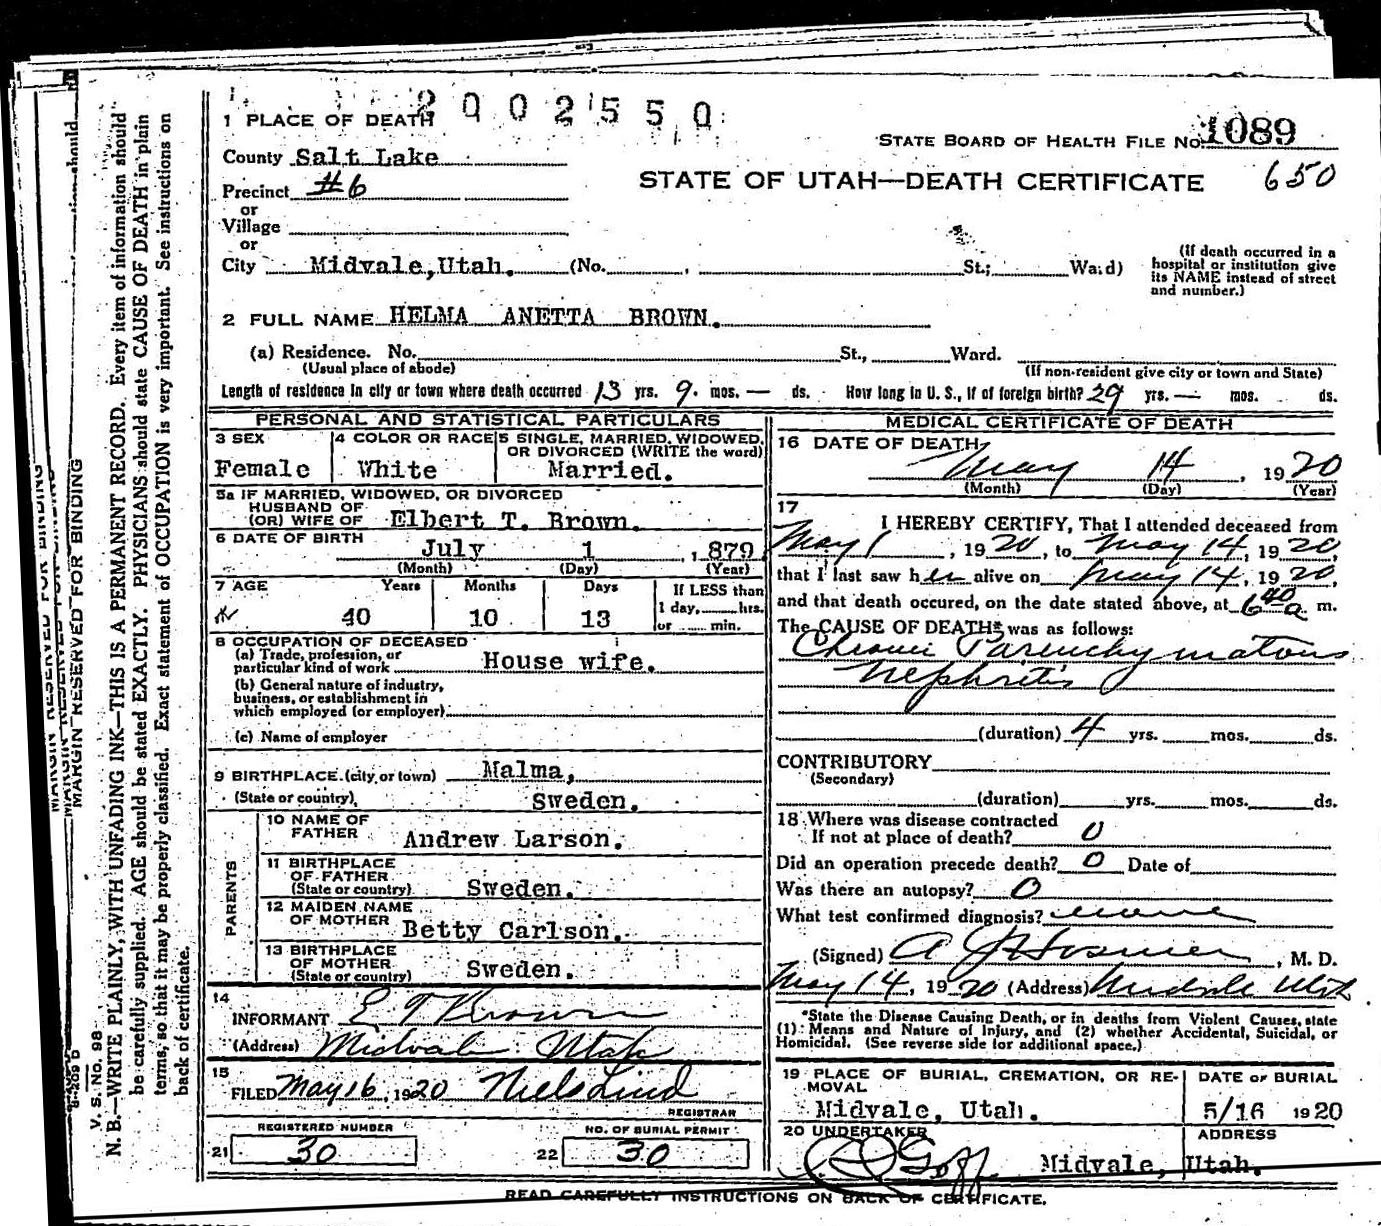 2002550
1 PLACE OF DEATH
STATE BOARD OF HEALTH FILE No. 1089
County Salt Lake
650
Precinct #6
STATE OF UTAH—DEATH CERTIFICATE
or
Village
or
City Midvale, Utah. (No. , St.; Ward)
(If death occurred in a hospital or institution give its NAME instead of street and number.)
2 FULL NAME HELMA ANETTA BROWN.
(a) Residence. No. St., Ward.
(Usual place of abode) (If non-resident give city or town and State)
Length of residence in city or town where death occurred 13 yrs. 9. mos. — ds. How long in U. S., if of foreign birth? 29 yrs. — mos. ds.
PERSONAL AND STATISTICAL PARTICULARS
3 SEX
Female
4 COLOR OR RACE
White
5 SINGLE, MARRIED, WIDOWED, OR DIVORCED (WRITE the word)
Married.
5a IF MARRIED, WIDOWED, OR DIVORCED
HUSBAND OF
(OR) WIFE OF Elbert T. Brown.
6 DATE OF BIRTH
July 1 , 1879
(Month) (Day) (Year)
7 AGE Years Months Days If LESS than
1 day, hrs.
40 10 13
or min.
8 OCCUPATION OF DECEASED
(a) Trade, profession, or
particular kind of work House wife.
(b) General nature of industry,
business, or establishment in
which employed (or employer)
(c) Name of employer
9 BIRTHPLACE (city or town) Malma,
(State or country) Sweden.
PARENTS
10 NAME OF
FATHER Andrew Larson.
11 BIRTHPLACE
OF FATHER
(State or country) Sweden.
12 MAIDEN NAME
OF MOTHER Betty Carlson.
13 BIRTHPLACE
OF MOTHER
(State or country) Sweden.
14
INFORMANT E T Brown
(Address) Midvale Utah
15
FILED May 16, 1920 Niels Lind
REGISTRAR
REGISTERED NUMBER NO. OF BURIAL PERMIT
21 30 22 30
MEDICAL CERTIFICATE OF DEATH
16 DATE OF DEATH
May 14, 1920
(Month) (Day) (Year)
17
I HEREBY CERTIFY, That I attended deceased from
May 1, 1920, to May 14, 1920,
that I last saw her alive on May 14, 1920,
and that death occured, on the date stated above, at 6 40 a m.
The CAUSE OF DEATH* was as follows:
Chronic Parenchymatous
Nephritis
(duration) 4 yrs. mos. ds.
CONTRIBUTORY
(Secondary)
(duration) yrs. mos. ds.
18 Where was disease contracted
If not at place of death? 0
Did an operation precede death? 0 Date of
Was there an autopsy? 0
What test confirmed diagnosis?
(Signed) A , M. D.
May 14, 1920 (Address) Midvale Utah
*State the Disease Causing Death, or in deaths from Violent Causes, state
(1) Means and Nature of Injury, and (2) whether Accidental, Suicidal, or
Homicidal. (See reverse side for additional space.)
19 PLACE OF BURIAL, CREMATION, OR RE-
MOVAL
Midvale, Utah.
DATE OF BURIAL
5/16 1920
20 UNDERTAKER
Goff
ADDRESS
Midvale, Utah.
READ CAREFULLY INSTRUCTIONS ON BACK OF CERTIFICATE.
MARGIN RESERVED FOR BINDING
V. S. No. 98
N. B.—WRITE PLAINLY, WITH UNFADING INK—THIS IS A PERMANENT RECORD. Every item of information should
be carefully supplied. AGE should be stated EXACTLY. PHYSICIANS should state CAUSE OF DEATH in plain
terms, so that it may be properly classified. Exact statement of OCCUPATION is very important. See instructions on
back of certificate.